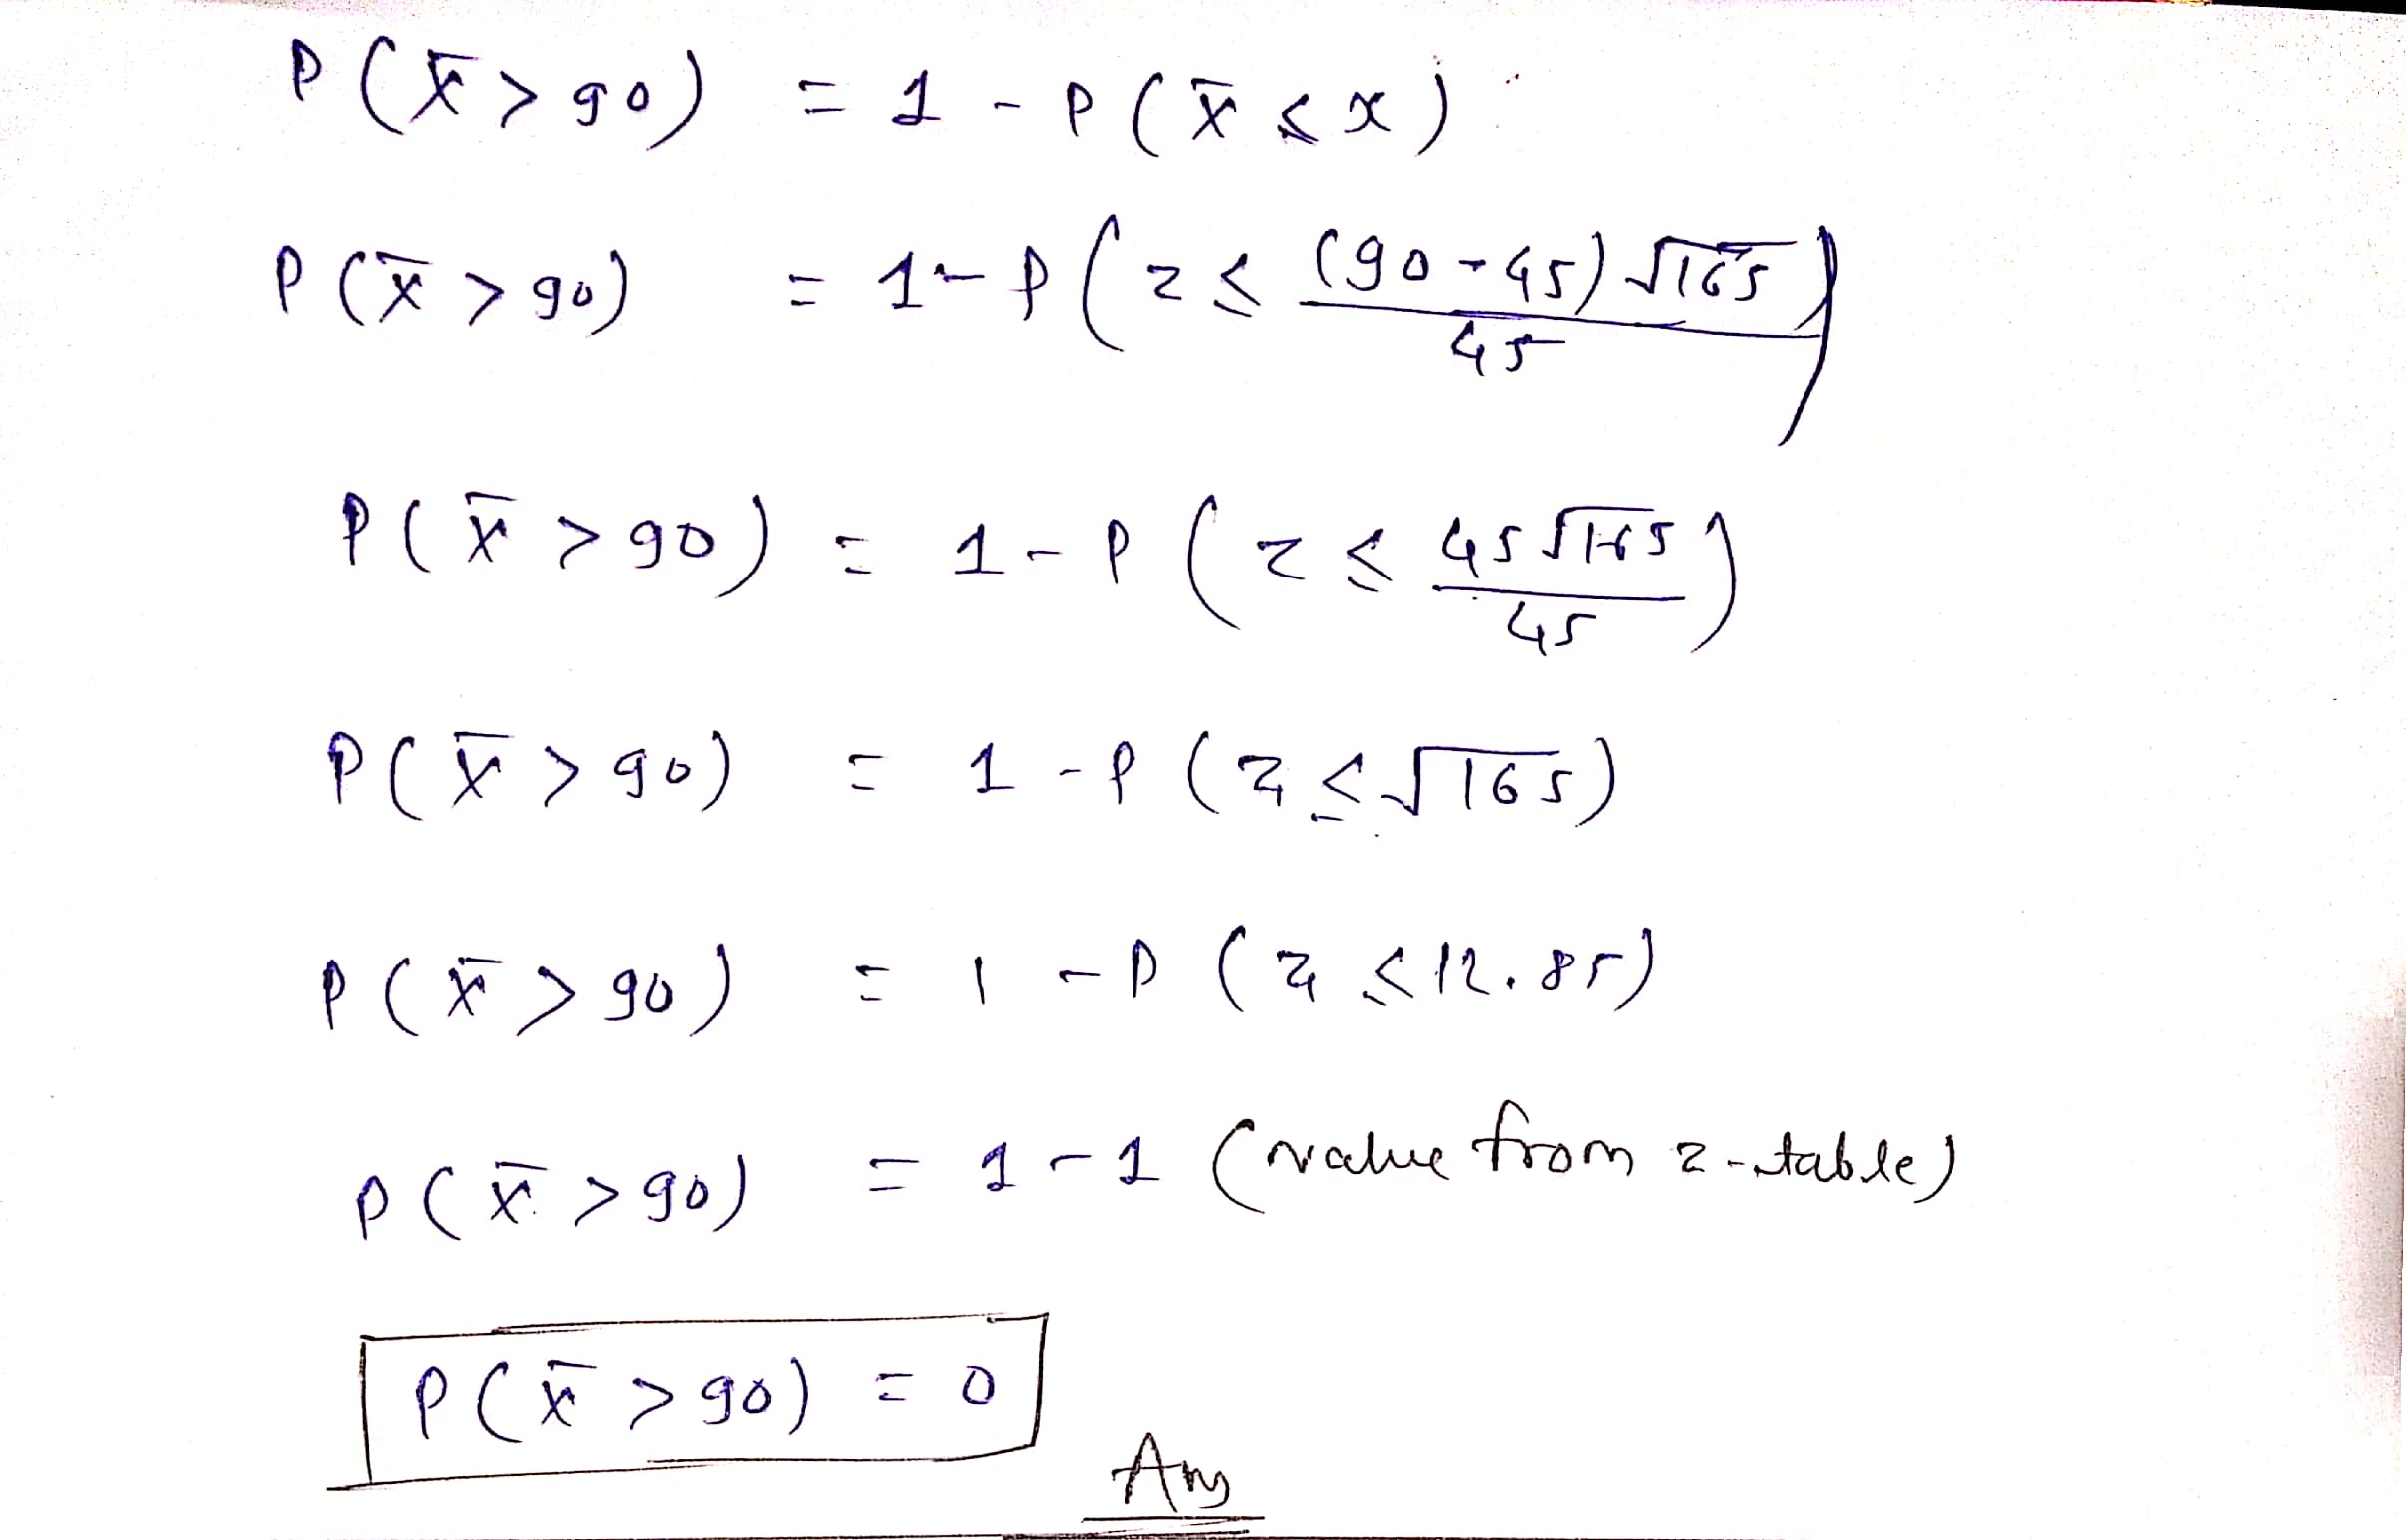 P(x̄ > 90) = 1 - P(x̄ ≤ x)
P(x̄ > 90) = 1 - P(z ≤ (90-45)√165 / 45)
P(x̄ > 90) = 1 - P(z ≤ 45√165 / 45)
P(x̄ > 90) = 1 - P(z ≤ √165)
P(x̄ > 90) = 1 - P(z ≤ 12.85)
P(x̄ > 90) = 1 - 1 (value from z-table)
P(x̄ > 90) = 0
Ans